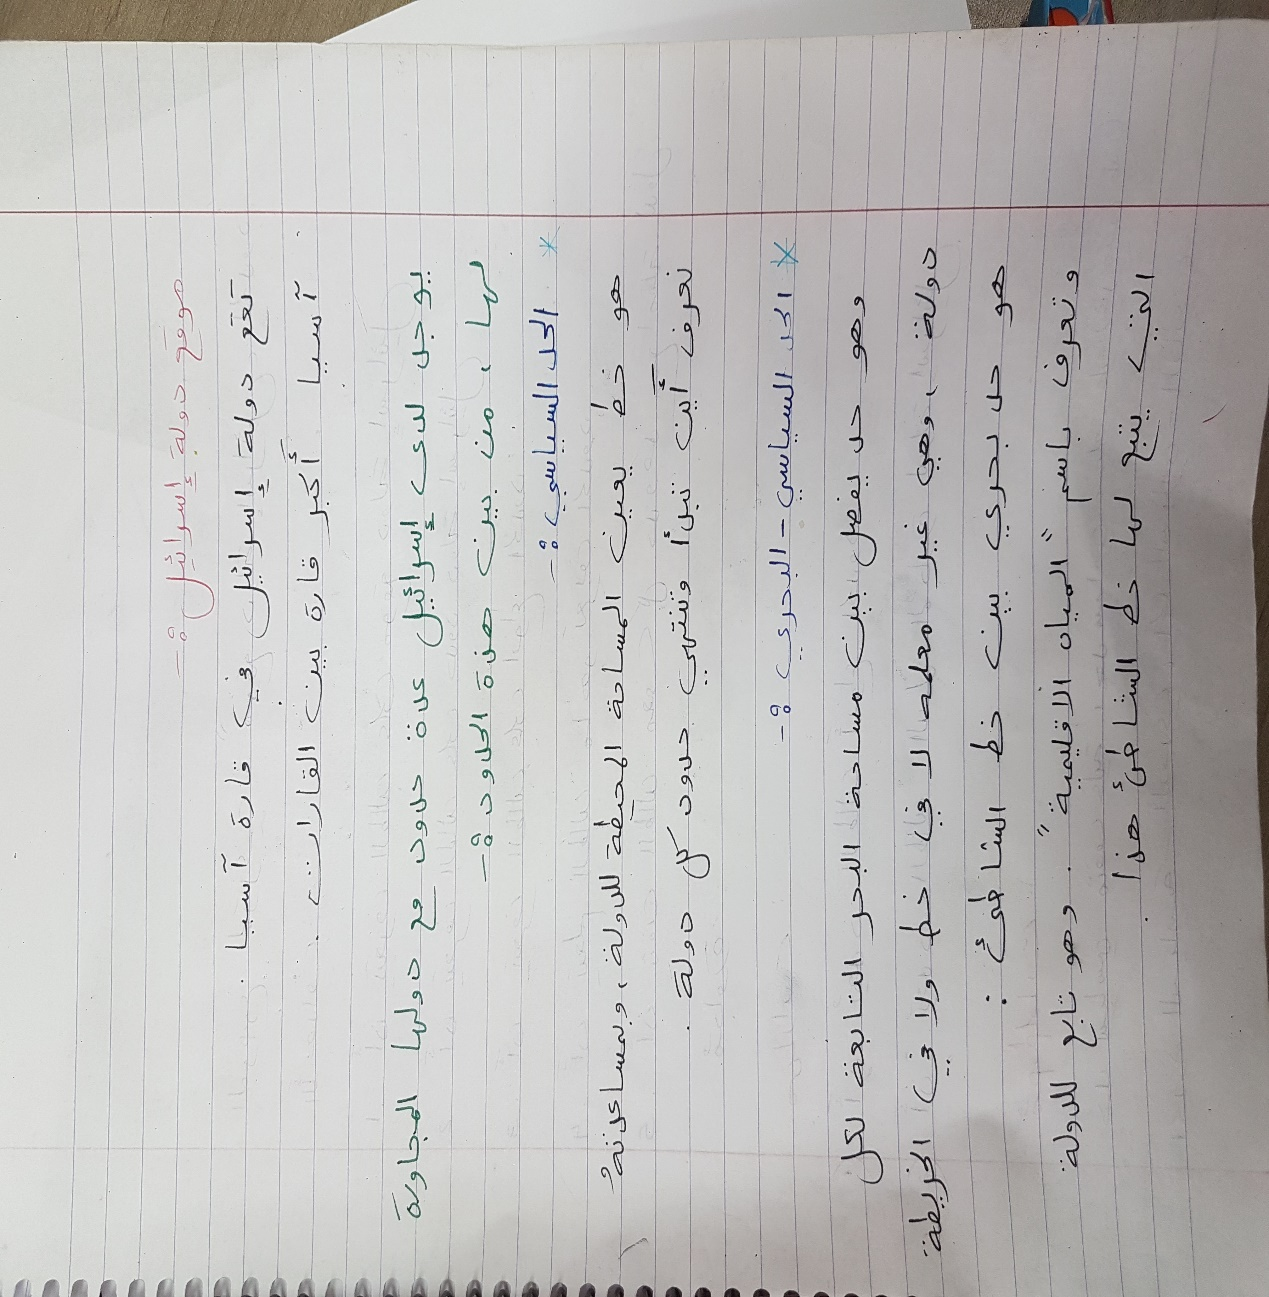 موقع دولة إسرائيل :-
تقع دولة إسرائيل في قارة آسيا .
آسيا أكبر قارة بين القارات .
يوجد لدى إسرائيل عدة حدود مع دولها المجاورة
لها ، من بين هذة الحدود :-
* الحد السياسي :-
هو خط يعين المساحة المحيطة للدولة ، وبمساعدته
نعرف أين تبدأ وتنتهي حدود كل دولة .
* الحد السياسي - البحري :-
وهو حد يفصل بين مساحة البحر التابعة لكل
دولة ، وهي غير معلمه لا في خط ولا في الخريطة
هو حد بحري بين خط الشاطئ :
وتعرف باسم "المياه الاقليمية" . وهو تابع للدولة
التي يتبع لها خط الشاطئ هذا .